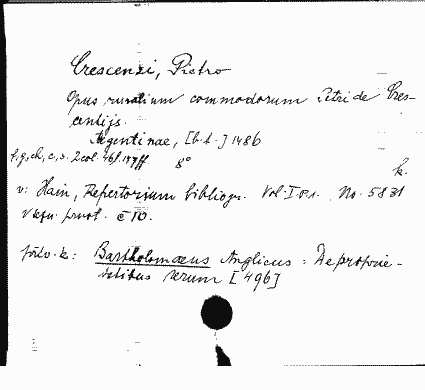 Crescenzi, Pietro
Opus ruralium commodorum Petri de Cres-
centijs.
Argentinae, [b.t.] 1486
f., g., ch., c., s. 2 col. 46 f. 8°
k.
v: Hain, Repertorium bibliogr. Vol. I. P.1. No. 5831
Bartholomaeus Anglicus: De proprie-
tatibus rerum [496]